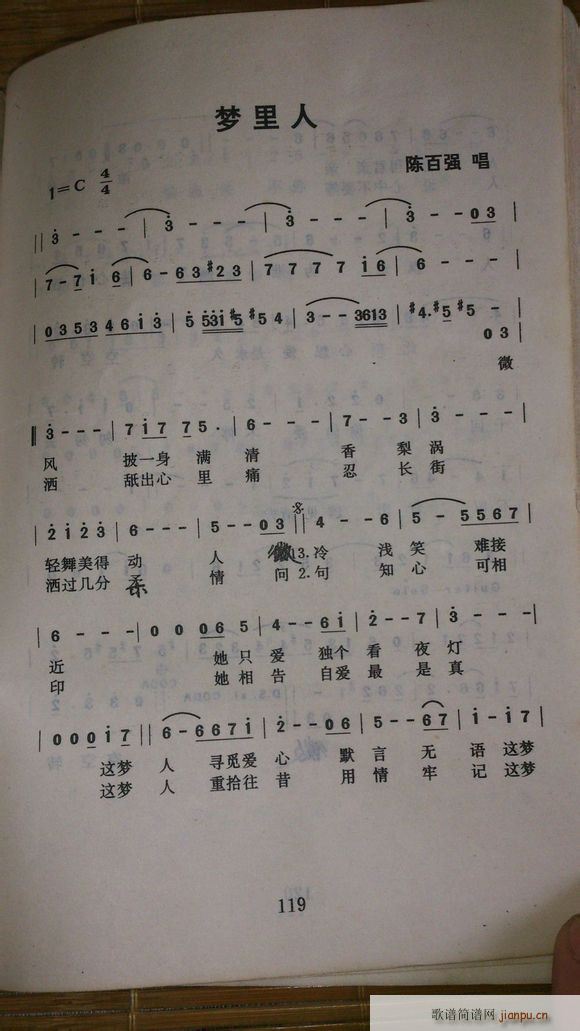 梦里人
陈百强 唱
1=C 4/4
‖ 3̇ - - - | 3̇ - - - | 3̇ - - - | 3̇ - - 0 3̇ |
| 7 - 7 i 6 | 6 - 6 3 #2 3 | 7 7 7 7 i 6 | 6 - - - |
| 0 3 5 3 4 6 i 3̇ | 5̇ 5̇3̇i #5 #5 4 | 3 - - 3613 | #4. #5 #5 -
0 3 |
微
‖ 3̇ - - - | 7 i 7 7 5. | 6 - - - | 7 - - 3 | 3̇ - - - |
风 披一身 满 清 香 梨 涡
洒 舐出心 里 痛 忍 长 街
| 2̇ i 2̇ 3̇ | 6 - - - | 5 - - 0 3 ‖ 4 - - 6 | 5 - 5 5 6 7 |
轻舞美得 动 人 微 3.冷 浅 笑 难接
洒过几分 柔 情 问 2.句 知 心 可相
| 6 - - - | 0 0 0 6 5 | 4 - - 6 i | 2̇ - - 7 | 3̇ - - - |
近 她 只 爱 独个 看 夜 灯
印 她 相 告 自爱 最 是 真
| 0 0 0 i 7 ‖ 6 - 6 6 7 i | 2̇ - - 0 6 | 5 - - 6 7 | i - i 7 |
这梦 人 寻觅爱 心 默 言 无 语 这梦
这梦 人 重拾往 昔 用 情 牢 记 这梦
119
歌谱简谱网
jianpu.cn